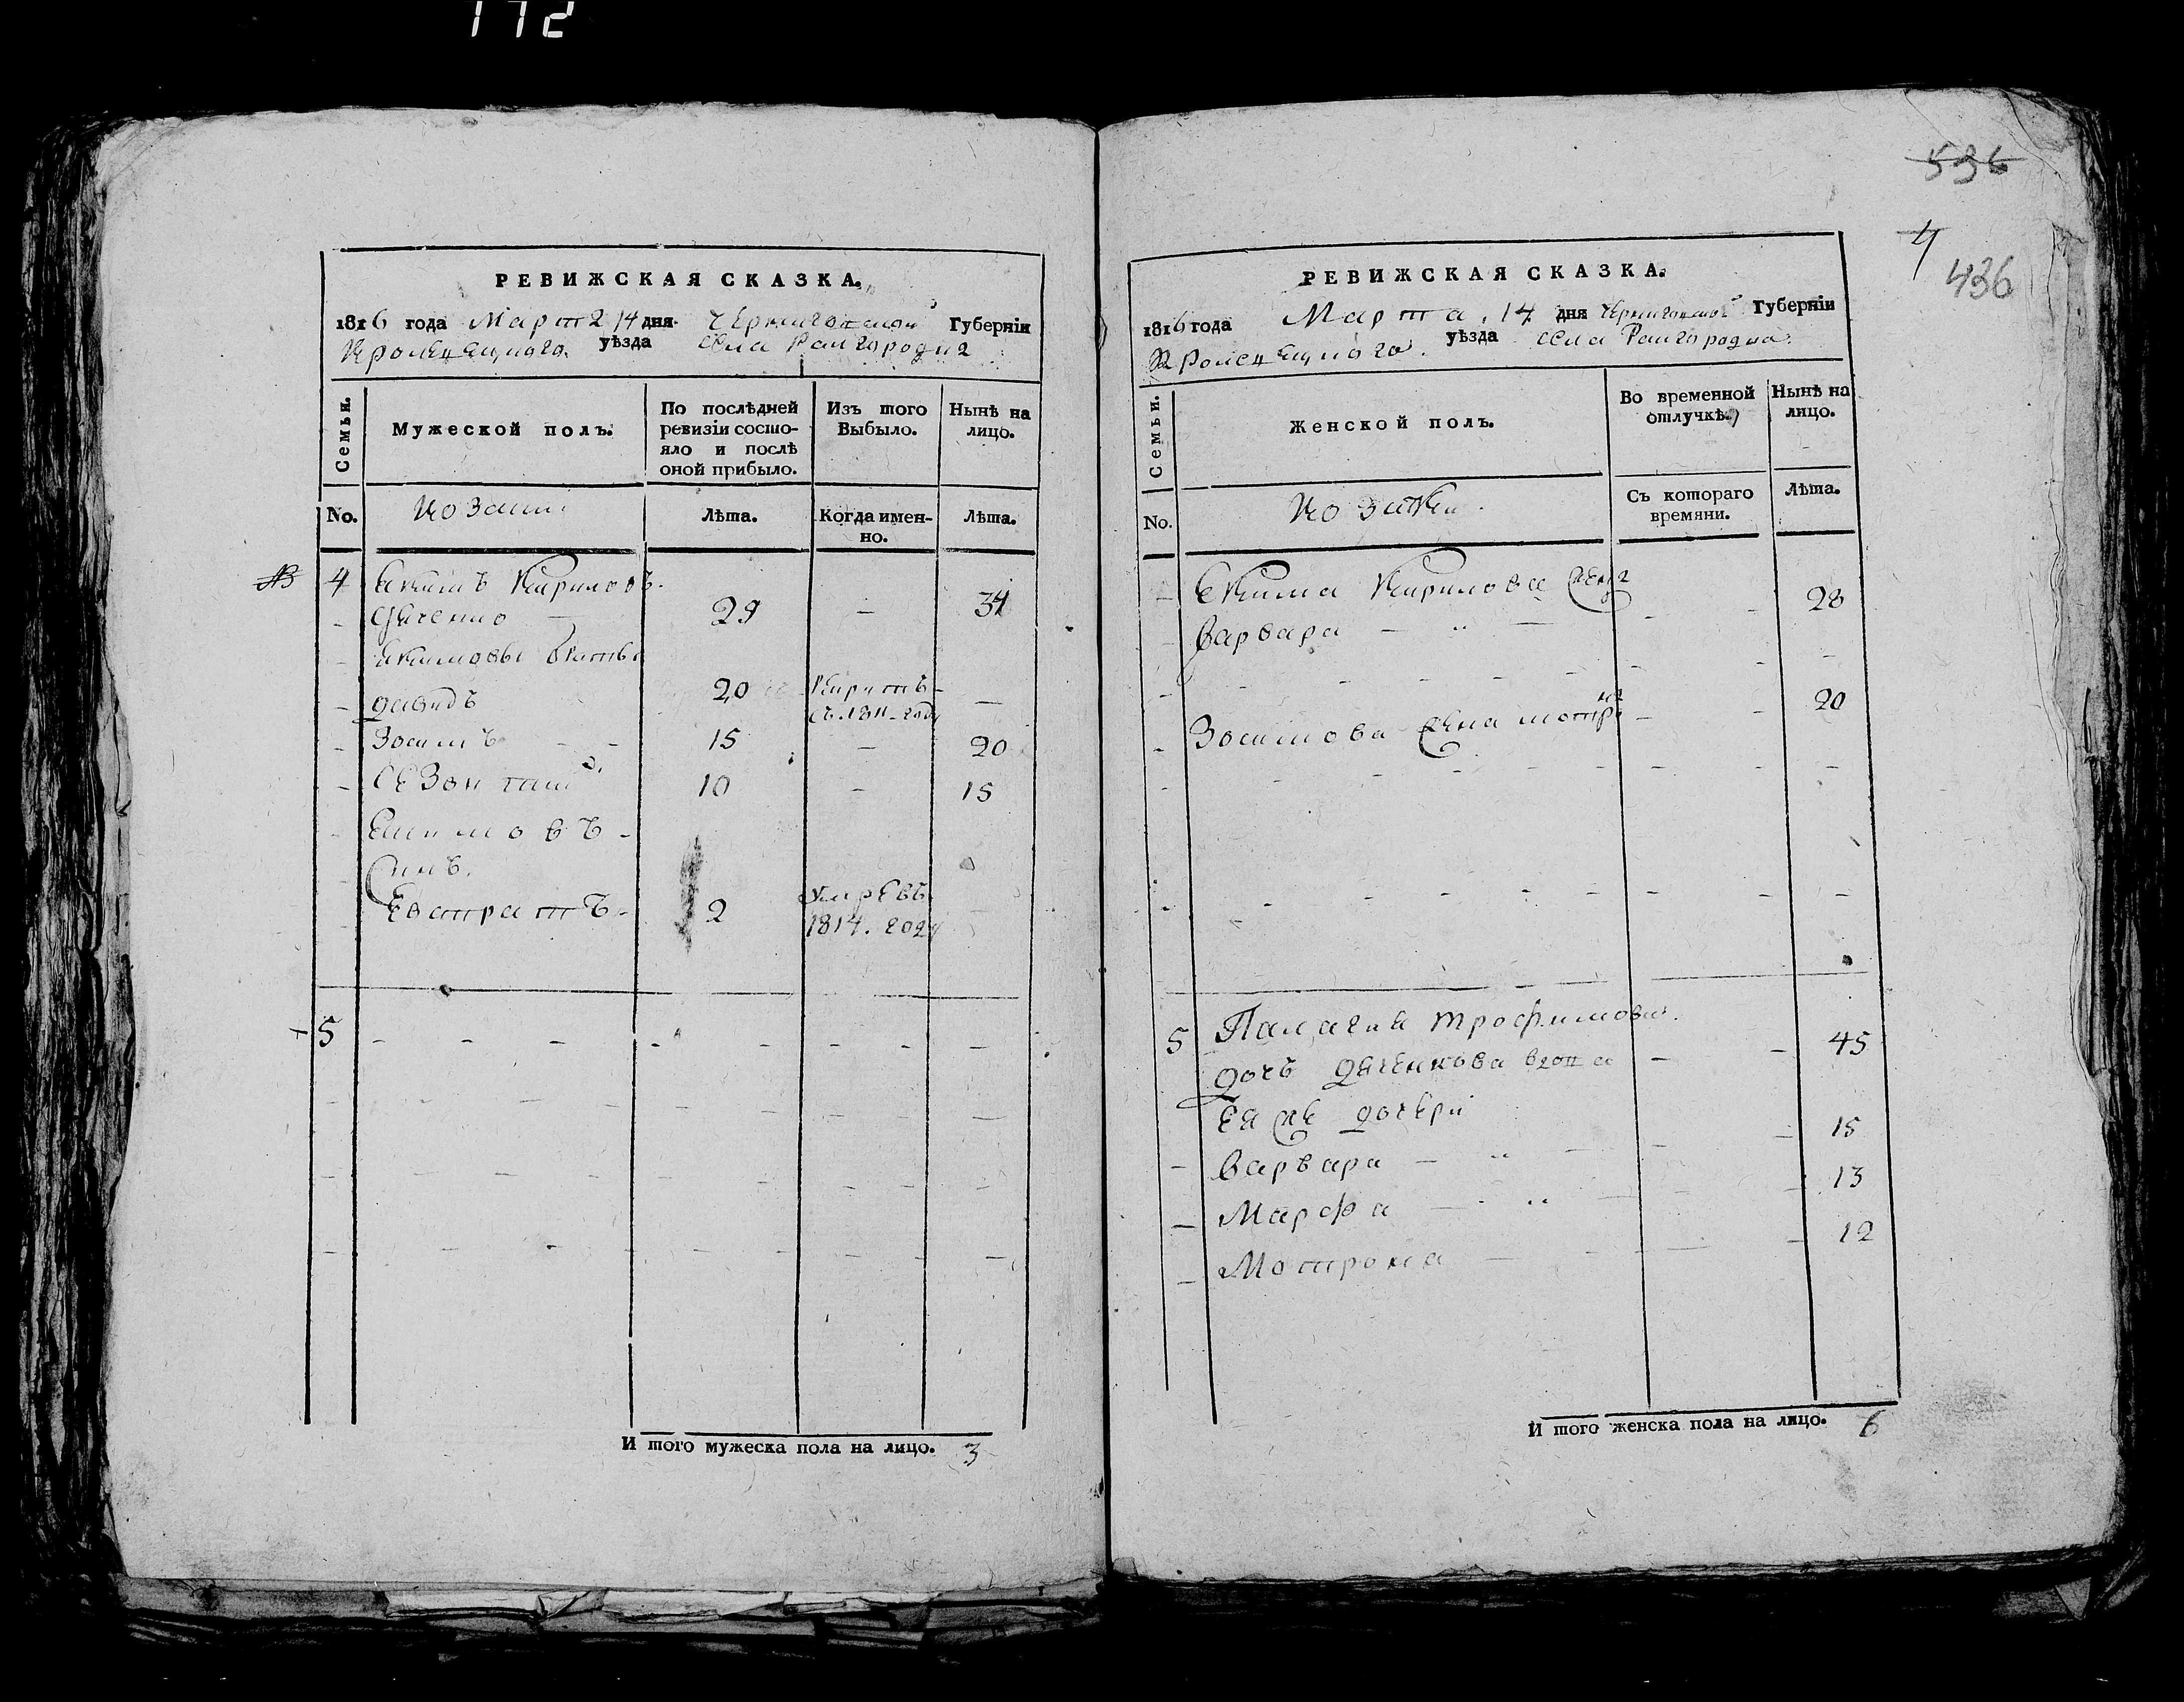 172
РЕВИЖСКАЯ СКАЗКА.
1816 года Марта 14 дня Черниговской Губерніи
Кролевецкаго уѣзда села Райгородка
Семьи.
Мужеской полъ.
По послѣдней ревизіи состояло и послѣ оной прибыло.
Изъ того Выбыло.
Нынѣ на лицо.
No.
Козаки
Лѣта.
Когда именно.
Лѣта.
4 Екимъ Кириловъ
Дяченко 29 — 34
Екимовы братья
Давидъ 20 съ 1811 году —
Зосимъ 15 — 20
Созонтий 10 — 15
Екимовъ
сынъ
Евстратъ 2 умре въ
1814. году
5
И того мужеска пола на лицо. 3
536
4
436
РЕВИЖСКАЯ СКАЗКА.
1816 года Марта 14 дня Черниговской Губерніи
Кролевецкаго уѣзда села Райгородка
Семьи.
Женской полъ.
Во временной отлучкѣ.
Нынѣ на лицо.
No.
Козачки
Съ котораго времяни.
Лѣта.
Екима Кирилова жена
Варвара 28
Зосимова жена Мотрона 20
5 Палагия Трофимова
дочь Дяченкова вдова 45
Ея же дочери
Варвара 15
Марфа 13
Мотрона 12
И того женска пола на лицо. 6